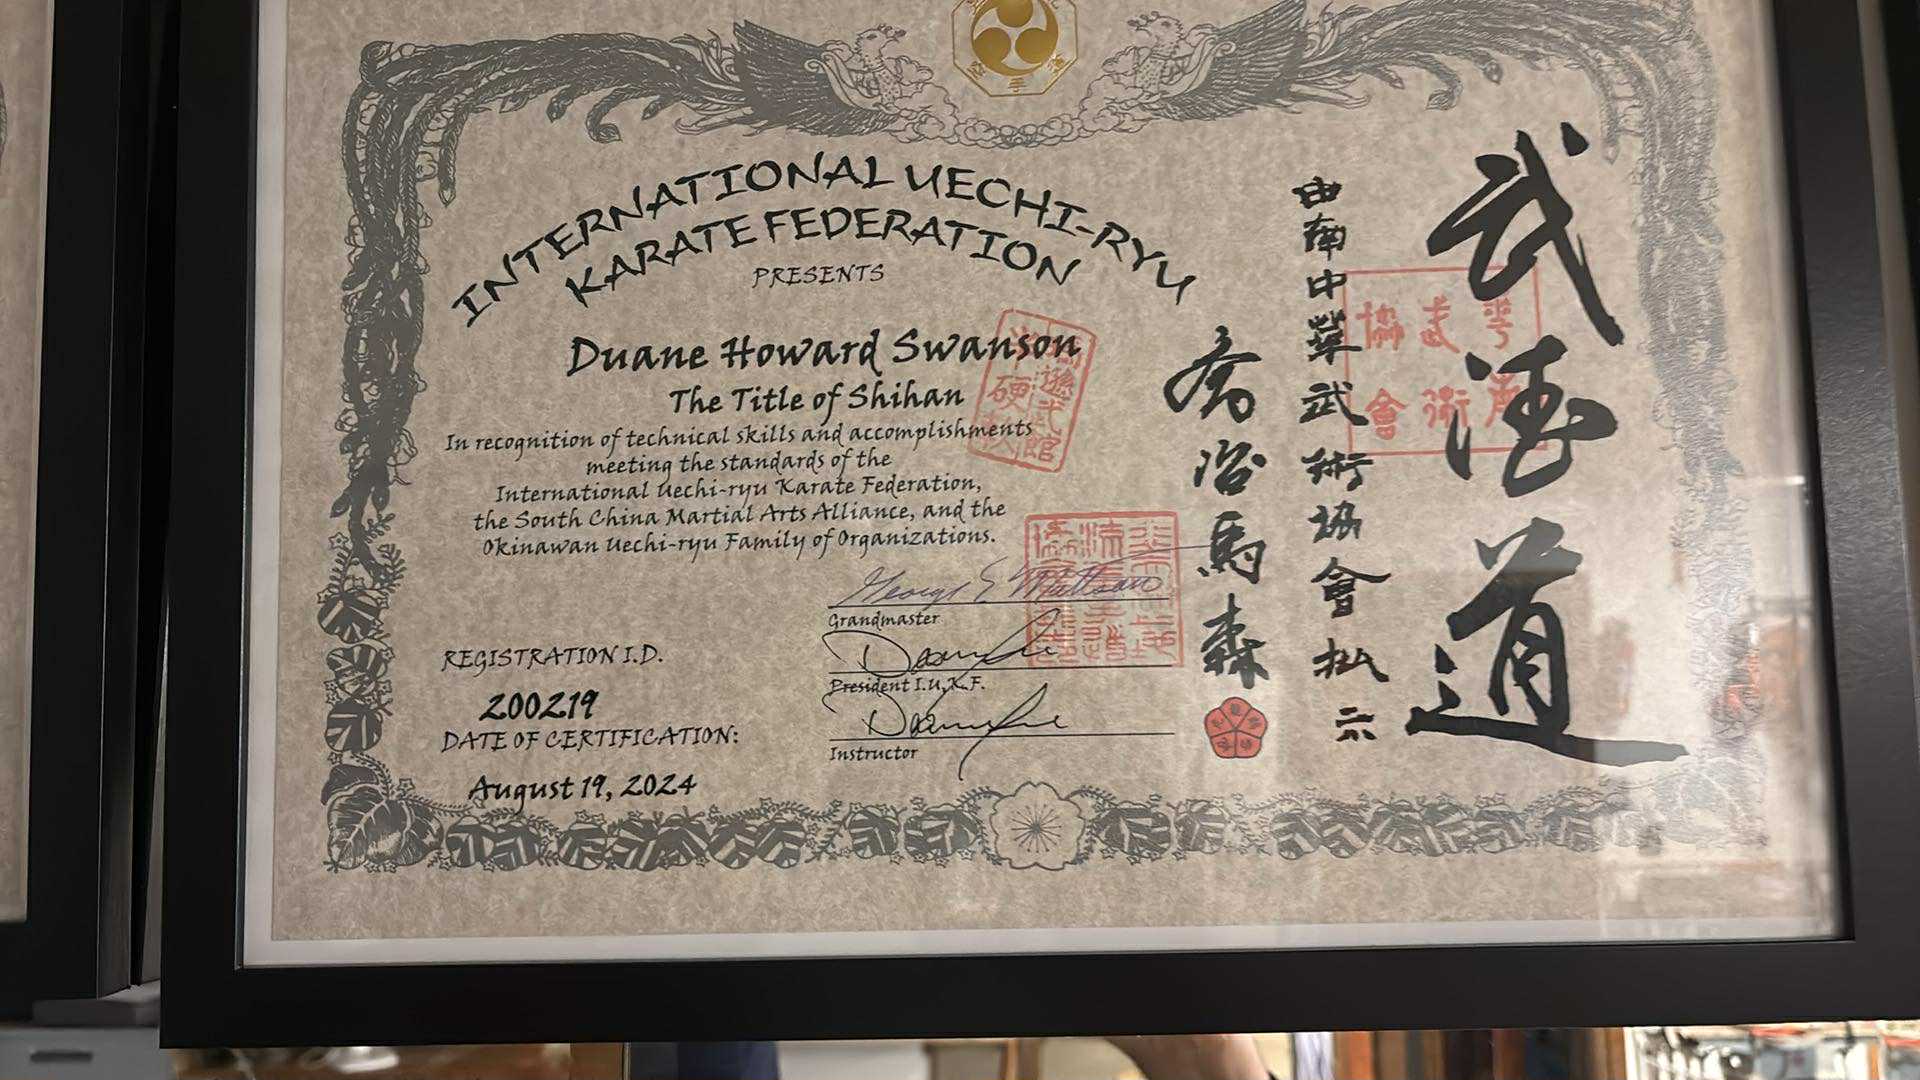 INTERNATIONAL UECHI-RYU
KARATE FEDERATION
PRESENTS
Duane Howard Swanson
The Title of Shihan
In recognition of technical skills and accomplishments
meeting the standards of the
International Uechi-ryu Karate Federation,
the South China Martial Arts Alliance, and the
Okinawan Uechi-ryu Family of Organizations.
George E Mattson
Grandmaster
President I.U.K.F.
Instructor
REGISTRATION I.D.
200219
DATE OF CERTIFICATION:
August 19, 2024
武德道
南中華武術協會
馬森
華南
武術
協會